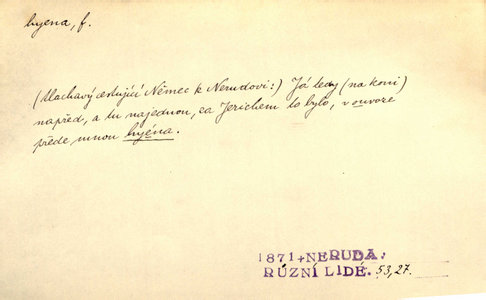 hyena, f.
(tlachavý cestující Němec k Nerudovi:) Já tedy (na koni)
napřed, a tu najednou, za Jerichem to bylo, v ouvoze
přede mnou hyéna.
1871 NERUDA,
RŮZNÍ LIDÉ. 53,27.